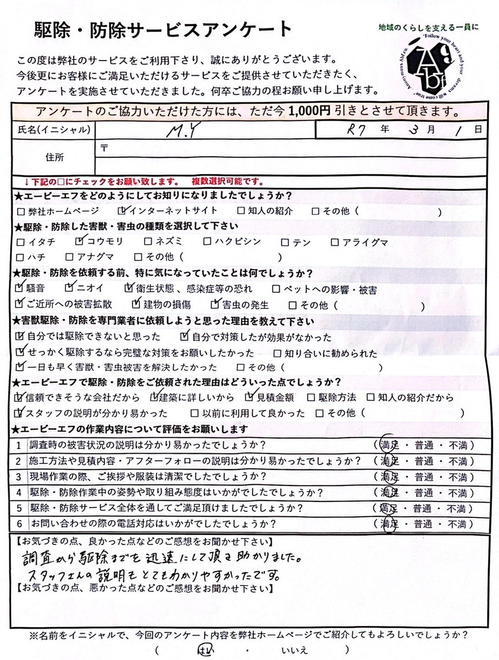 駆除・防除サービスアンケート
地域のくらしを支える一員に
この度は弊社のサービスをご利用下さり、誠にありがとうございます。
今後更にお客様にご満足いただけるサービスをご提供させていただきたく、
アンケートを実施させていただきました。何卒ご協力の程お願い申し上げます。
アンケートのご協力いただけた方には、ただ今1,000円引きとさせて頂きます。
氏名(イニシャル) M.Y R7 年 3 月 1 日
住所 〒
↓下記の□にチェックをお願い致します。 複数選択可能です。
★エービーエフをどのようにしてお知りになりましたでしょうか?
□弊社ホームページ ☑インターネットサイト □知人の紹介 □その他( )
★駆除・防除した害獣・害虫の種類を選択して下さい
□イタチ ☑コウモリ □ネズミ □ハクビシン □テン □アライグマ
□ハチ □アナグマ □その他( )
★駆除・防除を依頼する前、特に気になっていたことは何でしょうか?
☑騒音 ☑ニオイ ☑衛生状態、感染症等の恐れ □ペットへの影響・被害
☑ご近所への被害拡散 ☑建物の損傷 ☑害虫の発生 □その他( )
★害獣駆除・防除を専門業者に依頼しようと思った理由を教えて下さい
☑自分では駆除できないと思った ☑自分で対策したが効果がなかった
☑せっかく駆除するなら完璧な対策をお願いしたかった □知り合いに勧められた
☑一日も早く害獣・害虫被害を解決したかった □その他( )
★エービーエフで駆除・防除をご依頼された理由はどういった点でしょうか?
☑信頼できそうな会社だから ☑建築に詳しいから ☑見積金額 □駆除方法 □知人の紹介だから
☑スタッフの説明が分かり易かった □以前に利用して良かった □その他( )
★エービーエフの作業内容について評価をお願いします
1 調査時の被害状況の説明は分かり易かったでしょうか? (満足・普通・不満)
2 施工方法や見積内容・アフターフォローの説明は分かり易かったでしょうか? (満足・普通・不満)
3 現場作業の際、ご挨拶や服装は清潔でしたでしょうか? (満足・普通・不満)
4 駆除・防除作業中の姿勢や取り組み態度はいかがでしたでしょうか? (満足・普通・不満)
5 駆除・防除サービス全体を通してご満足頂けましたでしょうか? (満足・普通・不満)
6 お問い合わせの際の電話対応はいかがでしたでしょうか? (満足・普通・不満)
【お気づきの点、良かった点などのご感想をお聞かせ下さい】
調査から駆除までを迅速にして頂き助かりました。
スタッフさんの説明もとてもわかりやすかったです。
【お気づきの点、悪かった点などのご感想をお聞かせ下さい】
※名前をイニシャルで、今回のアンケート内容を弊社ホームページでご紹介してもよろしいでしょうか?
( はい ・ いいえ )